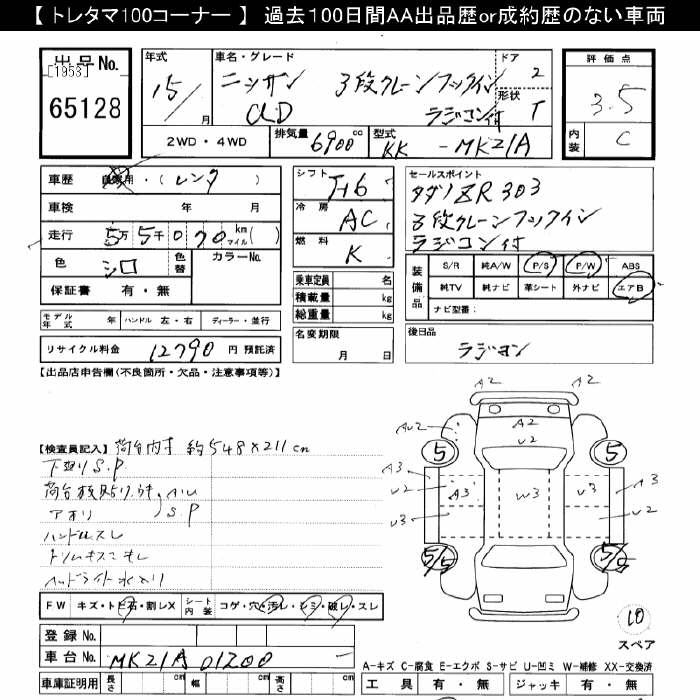 【 トレタマ100コーナー 】 過去100日間AA出品歴or成約歴のない車両
出品No.
[1953]
65128
年式
15
月
車名・グレード
ニッサン 3段クレーンフックイン
CLD ラジコン付
ドア
2
形状
T
評価点
3.5
内装
C
2WD・4WD
排気量
6900 cc
型式
KK - MK21A
車歴
自家用・(レンタ)
車検 年 月
走行 5万5千070 km マイル( )
色
シロ
色替
カラーNo.
保証書 有・無
シフト
F6
冷房
AC
燃料
K
乗車定員 名
積載量 kg
総重量 kg
セールスポイント
タダノZR303
3段クレーンフックイン
ラジコン付
装備品
S/R 純A/W P/S P/W ABS
純TV 純ナビ 革シート 外ナビ エアB
ナビ型番:
モデル年式 年 ハンドル 左・右 ディーラー・並行
リサイクル料金 12790 円 預託済
名変期限
月 日
後日品
ラジコン
【出品店申告欄(不良箇所・欠品・注意事項等)】
【検査員記入】 荷台内寸 約548×211cm
下廻りS.P
荷台板貼りウキ,Aル
アオリ S.P
ハンドルスレ
トリムキズこもし
ヘッドライト水入り
FW キズ・トビ石・割レX
シート内装 コゲ・穴・汚レ・シミ・破レ・スレ
登録No.
車台No. MK21A 01200
車庫証明用 長さ cm 幅 cm 高さ cm
A2 A2
AU2
A2
U2
5 5
A3 A3
U2 A3 W3 U2
U3 U3 U2
5/5 5/5
10
スペア
A-キズ C-腐食 E-エクボ S-サビ U-凹ミ W-補修 XX-交換済
工具 有・無 ジャッキ 有・無